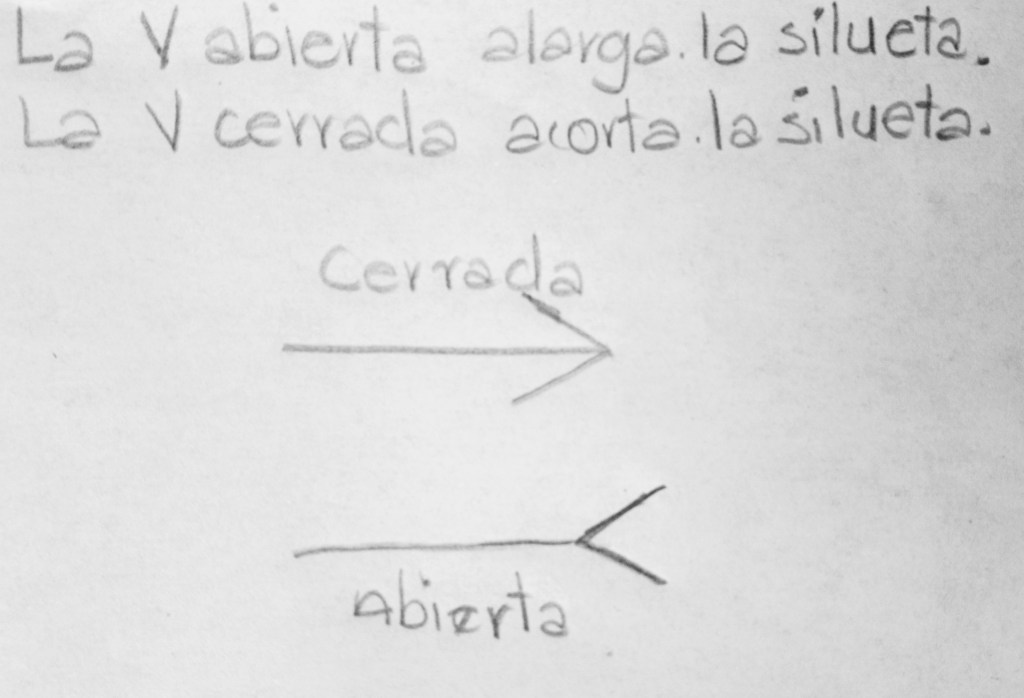 La V abierta alarga.la silueta.
La V cerrada acorta.la silueta.
Cerrada
Abierta